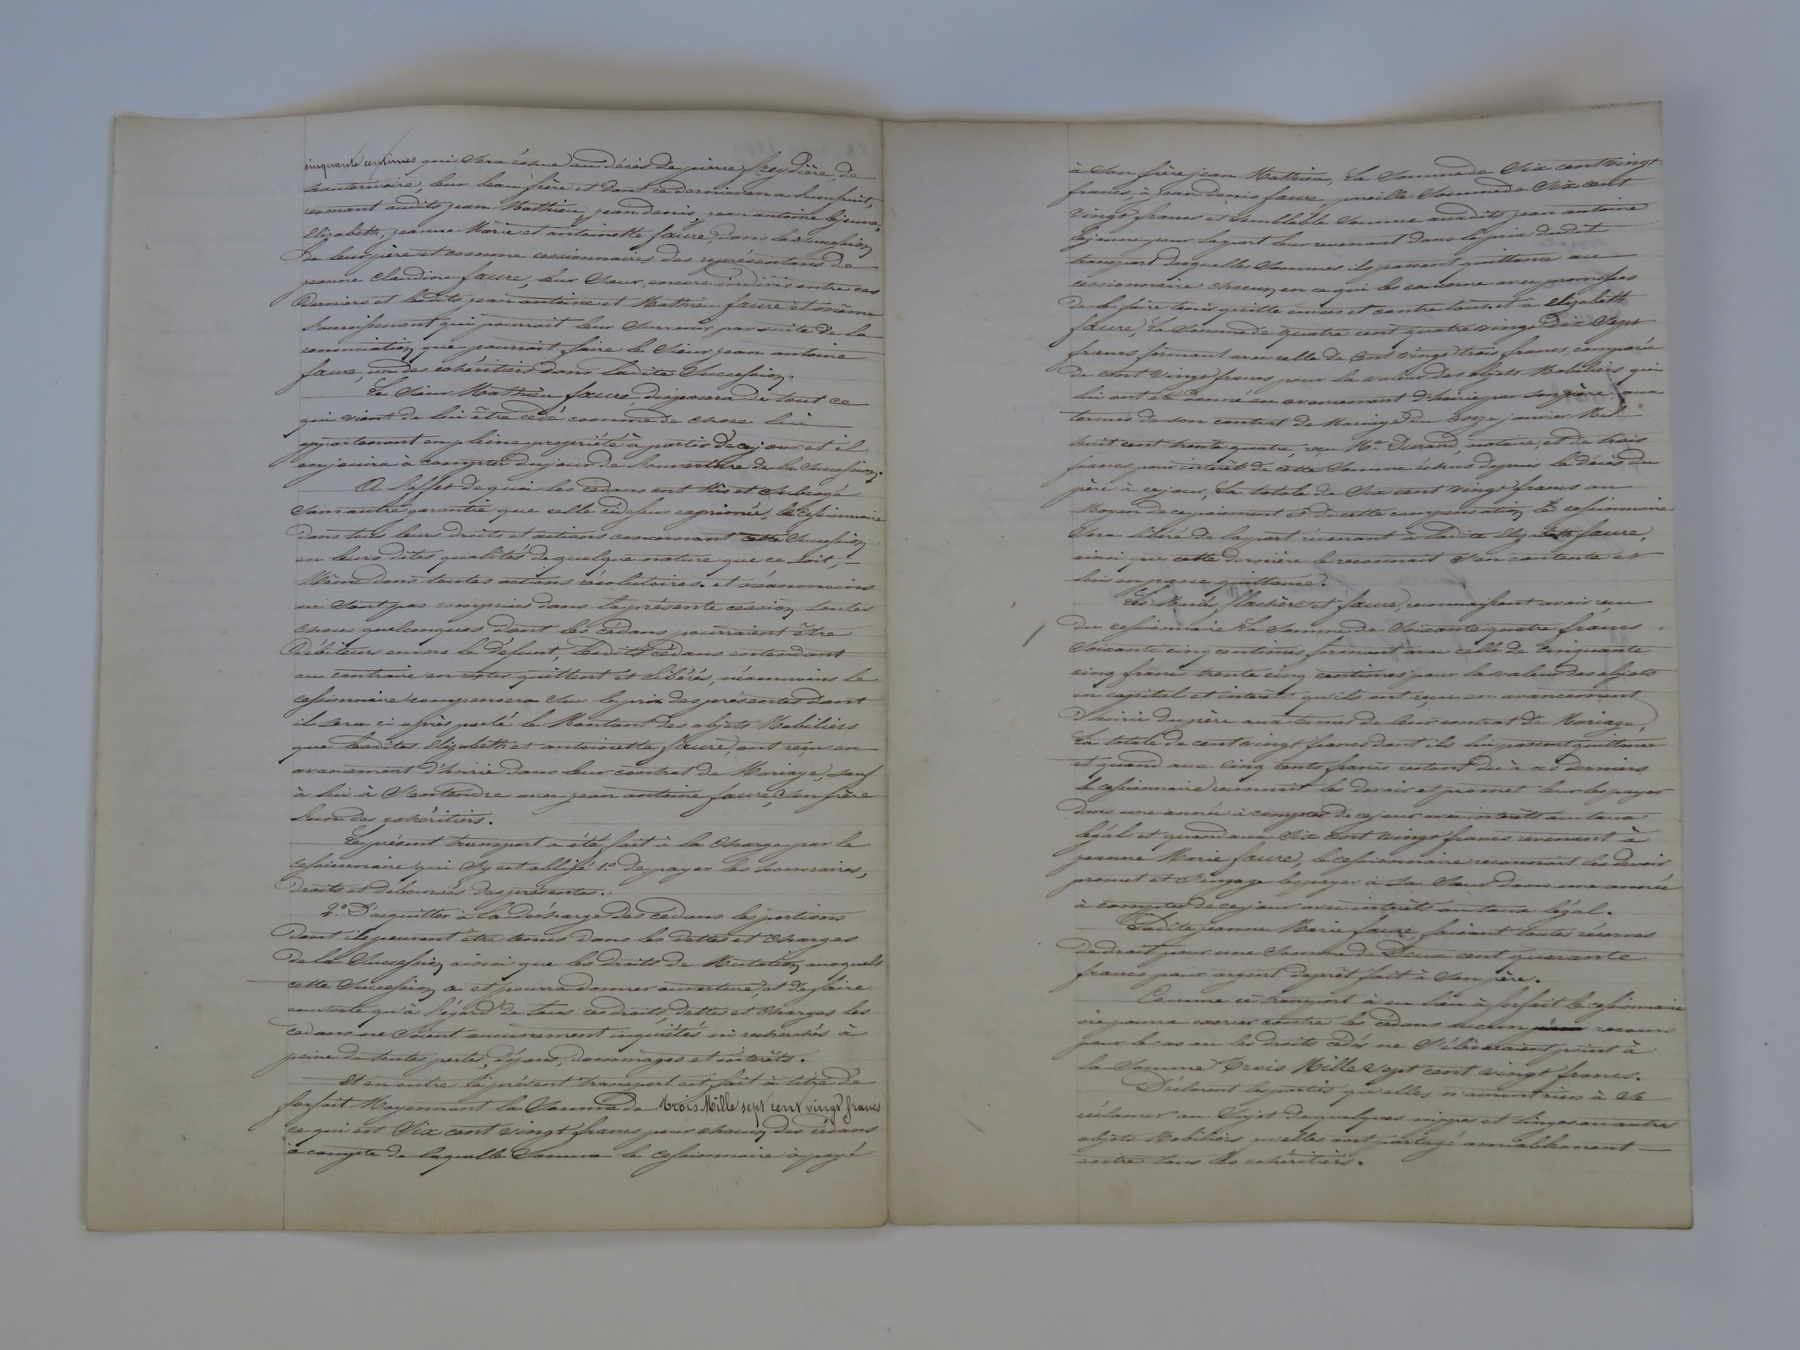 cinquante centimes qui sera échue au décès de pierre freydière, de
hauterivoire, leur beau frère et dont ce dernier en a l'usufruit,
revenant audits jean Mathieu, jean denis, jean antoine lejeune,
Elizabeth, jeanne Marie et antoinette faure, dans la succession
de leur père et comme cessionnaires des représentans de
jeanne Claudine faure, leur sœur, encore indivis entre ces
derniers et lesdits jean antoine et Mathieu faure et même
l'accroissement qui pourrait leur survenir par suite de la
renonciation que pourrait faire le sieur jean antoine
faure, un des cohéritiers dans ladite succession.
Le sieur Mathieu faure, disposera de tout ce
qui vient de lui être cédé comme de chose lui
appartenant en pleine propriété à partir de ce jour et il
en jouira à compter du jour de l'ouverture de la succession.
A l'effet de quoi les cédans ont mis et subrogé
sans autre garantie que celle ci dessus exprimée, le cessionnaire
dans tous leurs droits et actions concernant cette succession
en leurs dites qualités de quelque nature que ce soit,
Même dans toutes actions résolutoires. et néanmoins
ne sont pas comprises dans la présente cession toutes
choses quelconques dont les cédans pourraient être
débiteurs envers le défunt, lesdits cédans entendant
au contraire en rester quittent et libérés, néanmoins le
cessionnaire compensera sur le prix des présentes dont
il sera ci après parlé le Montant des objets Mobiliers
que lesdites Elizabeth et antoinette faure, ont reçu en
avancement d'hoirie dans leur contrat de Mariage, sauf
à lui à s'entendre avec jean antoine faure, son frère
l'un des cohéritiers.
Le présent transport a été fait à la charge par le
cessionnaire qui s'y est obligé 1.º de payer les honoraires,
droits et déboursés des présentes.
2.º D'acquitter à la décharge des cédans les portions
dont ils peuvent être tenus dans les dettes et charges
de la succession ainsi que les droits de Mutation auxquels
cette succession a et pourra donner ouverture, et de faire
en sorte qu'à l'égard de tous ces droits, dettes et charges les
cédans ne soient aucunement inquiétés ni recherchés à
peine de toutes pertes, dépens, dommages et intérêts.
Et en outre le présent transport est fait à titre de
forfait Moyennant la somme de trois Mille sept cent vingt francs
ce qui est six cent vingt francs pour chacun des cédans
à compte de laquelle somme le cessionnaire a payé
à son frère jean Mathieu, la somme de six cent vingt
francs, à jean denis faure, pareille somme de six cent
vingt francs et semblable somme audit jean antoine
lejeune pour la part leur revenant dans le prix dudit
transport desquelles sommes ils passent quittance au
cessionnaire chacun en ce qui le concerne avec promesses
de le faire tenir quitte envers et contre tous. et à Elizabeth
faure, la somme de quatre cent quatre vingt dix sept
francs, formant avec celle de cent vingt trois francs, composée
de cent vingt francs pour la valeur des objets Mobiliers qui
lui ont été donné en avancement d'hoirie par son père aux
termes de son contrat de Mariage du onze janvier Mil
huit cent trente quatre, reçu M.e Durand, notaire, et de trois
francs pour intérêt de cette somme échus depuis le décès du
père à ce jour, La totale de six cent vingt francs au
Moyen de ce paiement et de cette compensation le cessionnaire
sera libéré de la part revenant à ladite Elizabeth faure,
ainsi que cette dernière le reconnait s'en contente et
lui en passe quittance.
Les Mariés flachère et faure, reconnaissent avoir reçu
du cessionnaire la somme de soixante quatre francs
soixante cinq centimes formant avec celle de cinquante
cinq francs trente cinq centimes pour la valeur des objets
en capital et intérêts qu'ils ont reçu en avancement
d'hoirie du père aux termes de leur contrat de Mariage,
La totale de cent vingt francs dont ils lui passent quittance
et quand aux cinq cents francs restant dû à ces derniers
le cessionnaire reconnait les devoir et promet leur les payer
dans une année à compter de ce jour avec intérêts au taux
légal et quand aux six cent vingt francs revenant à
jeanne Marie faure, le cessionnaire reconnait les devoir
promet et s'engage les payer à sa sœur dans une année
à compter de ce jour avec intérêts au taux légal.
Ladite jeanne Marie faure faisant toutes réserves
de droit pour une somme de Deux cent quarante
francs pour argent de prêt fait à son père.
Comme ce transport à eu lieu à forfait le cessionnaire
ne pourra exercer contre les cédans aucun recours
pour le cas ou les droits cédés ne s'élèveraient point à
la somme trois Mille sept cent vingt francs.
Déclarent les parties qu'elles n'auront rien à se
réclamer au sujet de quelques nippes et linges ou autres
objets Mobiliers qu'elles ont partagé amiablement
entre tous les cohéritiers.